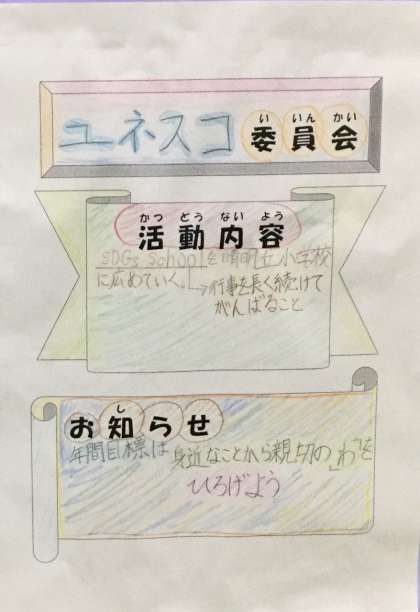 ユネスコ委員会
いいんかい
かつどうないよう
活動内容
SDGs Schoolを晴明丘小学校
に広めていく。
→行事を長く続けて
がんばること
し
お知らせ
年間目標は身近なことから親切の「わ」を
ひろげよう